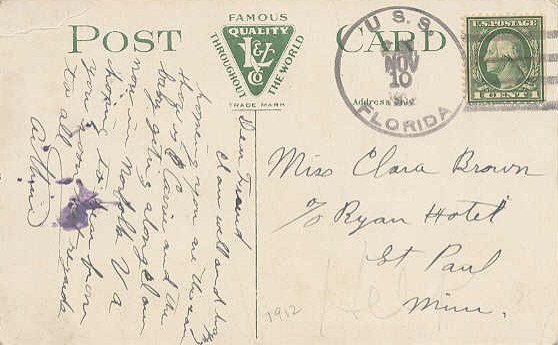 POST CARD
FAMOUS
QUALITY
THROUGHOUT THE WORLD
K & Z
CO
TRADE MARK
Address Only
U.S.S.
NOV
10
FLORIDA
U.S. POSTAGE
1 CENT 1
Dear Friend
I am well and hope
hoping you are the same
baby getting along I am
now in Norfolk Va
hoping to hear from
you soon regards
to all
Miss Clara Brown
c/o Ryan Hotel
St Paul
Minn.
1912